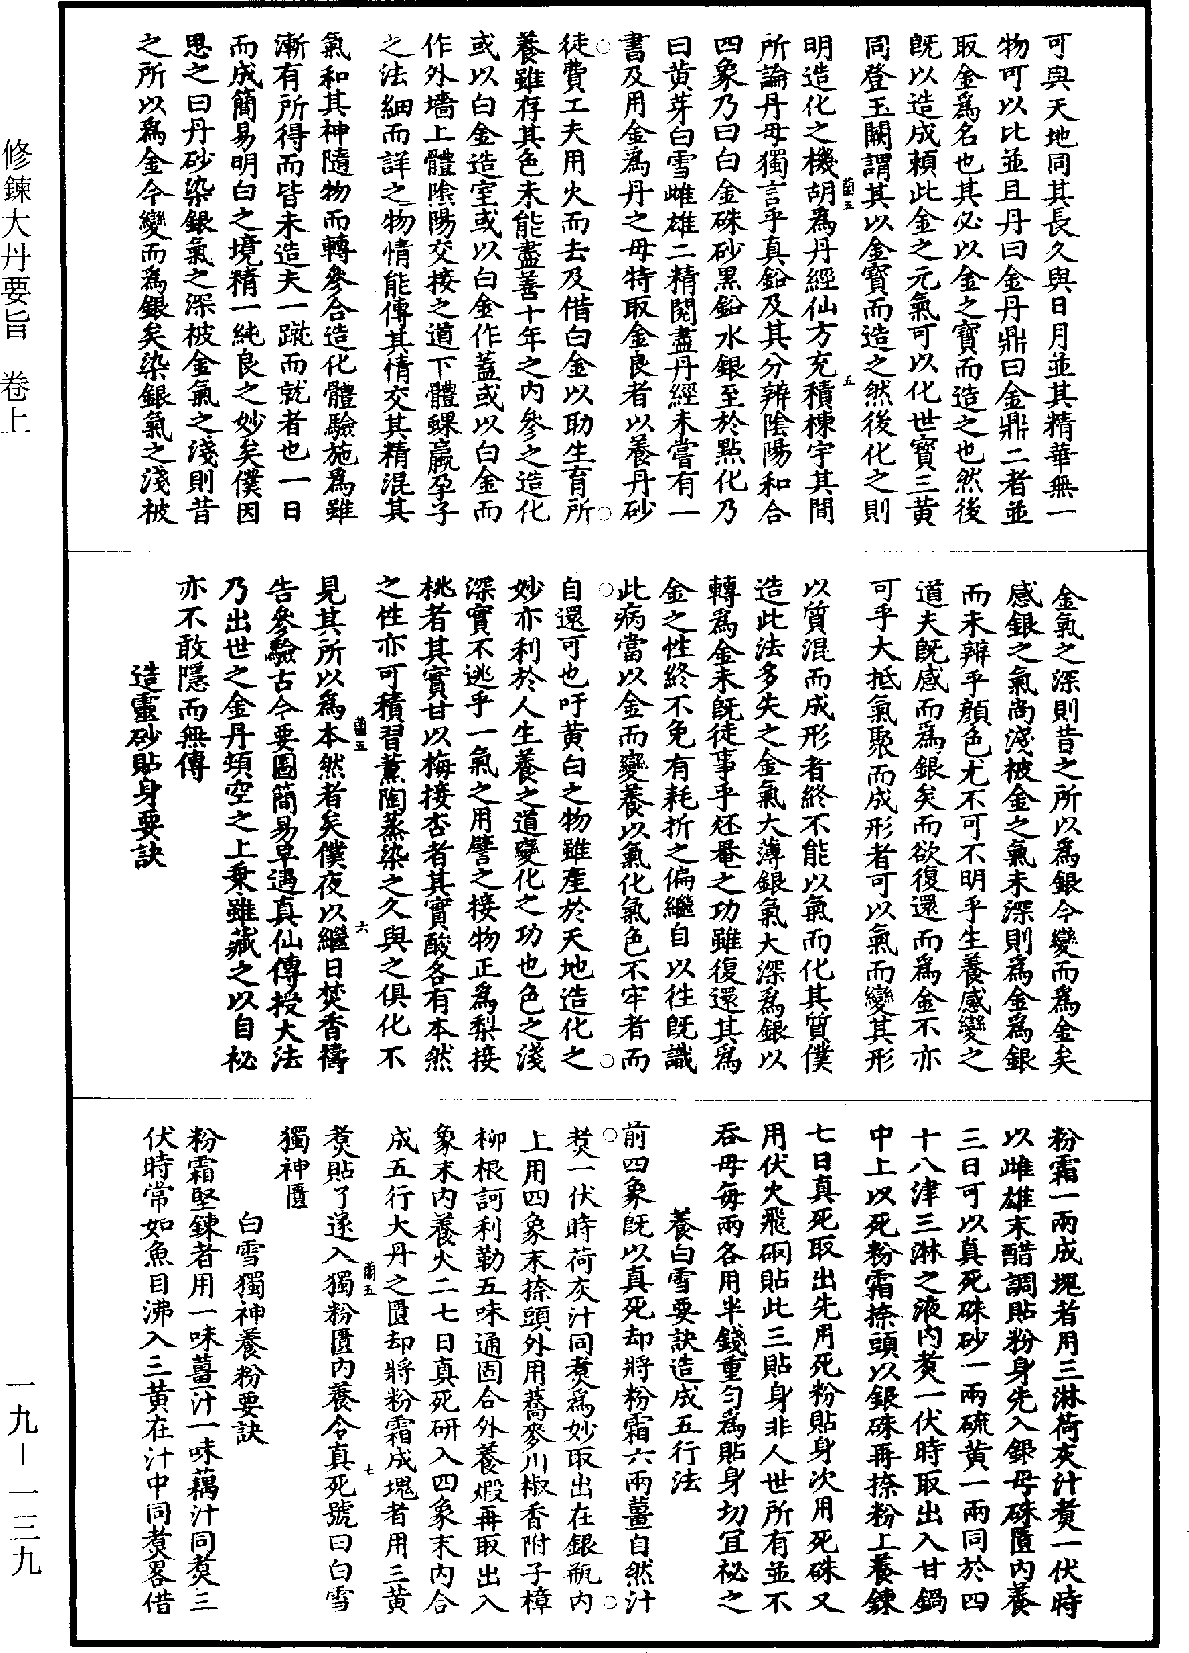 可與天地同其長久與日月並其精華無一
物可以比並且丹曰金丹鼎曰金鼎二者並
取金為名也其必以金之寶而造之也然後
既以造成賴此金之元氣可以化世寶三黃
同登玉闕謂其以金寶而造之然後化之則
明造化之機胡為丹經仙方充積棟宇其間
所論丹母獨言乎真鉛及其分辨陰陽和合
四象乃曰白金硃砂黑鉛水銀至於點化乃
曰黃芽白雪雌雄二精閱盡丹經未嘗有一
書及用金為丹之母特取金良者以養丹砂
徒費工夫用火而去及借白金以助生育所
養雖存其色未能盡善十年之內參之造化
或以白金造室或以白金作蓋或以白金而
作外墻上體陰陽交接之道下體螺蠃孕子
之法細而詳之物情能傳其情交其精混其
氣和其神隨物而轉參合造化體驗施為雖
漸有所得而皆未造夫一蹴而就者也一日
而成簡易明白之境精一純良之妙矣僕因
思之曰丹砂染銀氣之深被金氣之淺則昔
之所以為金今變而為銀矣染銀氣之淺被
金氣之深則昔之所以為銀今變而為金矣
感銀之氣尚淺被金之氣未深則為金為銀
而未辨乎顏色尤不可不明乎生養感變之
道夫既感而為銀矣而欲復還而為金不亦
可乎大抵氣聚而成形者可以氣而變其形
以質混而成形者終不能以氣而化其質僕
造此法多失之金氣大薄銀氣大深為銀以
轉為金未既徒事乎烓罨之功雖復還其為
金之性終不免有耗折之偏繼自以往既識
此病當以金而變養以氣化氣色不牢者而
自還可也吁黃白之物雖產於天地造化之
妙亦利於人生養之道變化之功也色之淺
深實不逃乎一氣之用譬之接物正為梨接
桃者其實甘以梅接杏者其實酸各有本然
之性亦可積習薰陶蒸染之久與之俱化不
見其所以為本然者矣僕夜以繼日焚香禱
告參驗古今要圖簡易早遇真仙傳授大法
乃出世之金丹頂空之上乘雖藏之以自祕
亦不敢隱而無傳
造靈砂貼身要訣
粉霜一兩成塊者用三淋荷灰汁煮一伏時
以雌雄末醋調貼粉身先入銀母硃匱內養
三日可以真死硃砂一兩硫黃一兩同於四
十八津三淋之液內煮一伏時取出入甘鍋
中上以死粉霜捺頭以銀硃再捺粉上養鍊
七日真死取出先用死粉貼身次用死硃又
用伏火飛硐貼此三貼身非人世所有並不
吞母每兩各用半錢重勻為貼身切宜祕之
養白雪要訣造成五行法
前四象既以真死却將粉霜六兩薑自然汁
煮一伏時荷灰汁同煮為妙取出在銀瓶內
上用四象末捺頭外用蕎麥川椒香附子樟
柳根訶利勒五味通固合外養煅再取出入
象末內養火二七日真死研入四象末內合
成五行大丹之匱却將粉霜成塊者用三黃
煮貼了遂入獨粉匱內養令真死號曰白雪
獨神匱
白雪獨神養粉要訣
粉霜堅鍊者用一味薑汁一味藕汁同煮三
伏時常如魚目沸入三黃在汁中同煮畧借
修鍊大丹要旨　卷上
一九－一三九